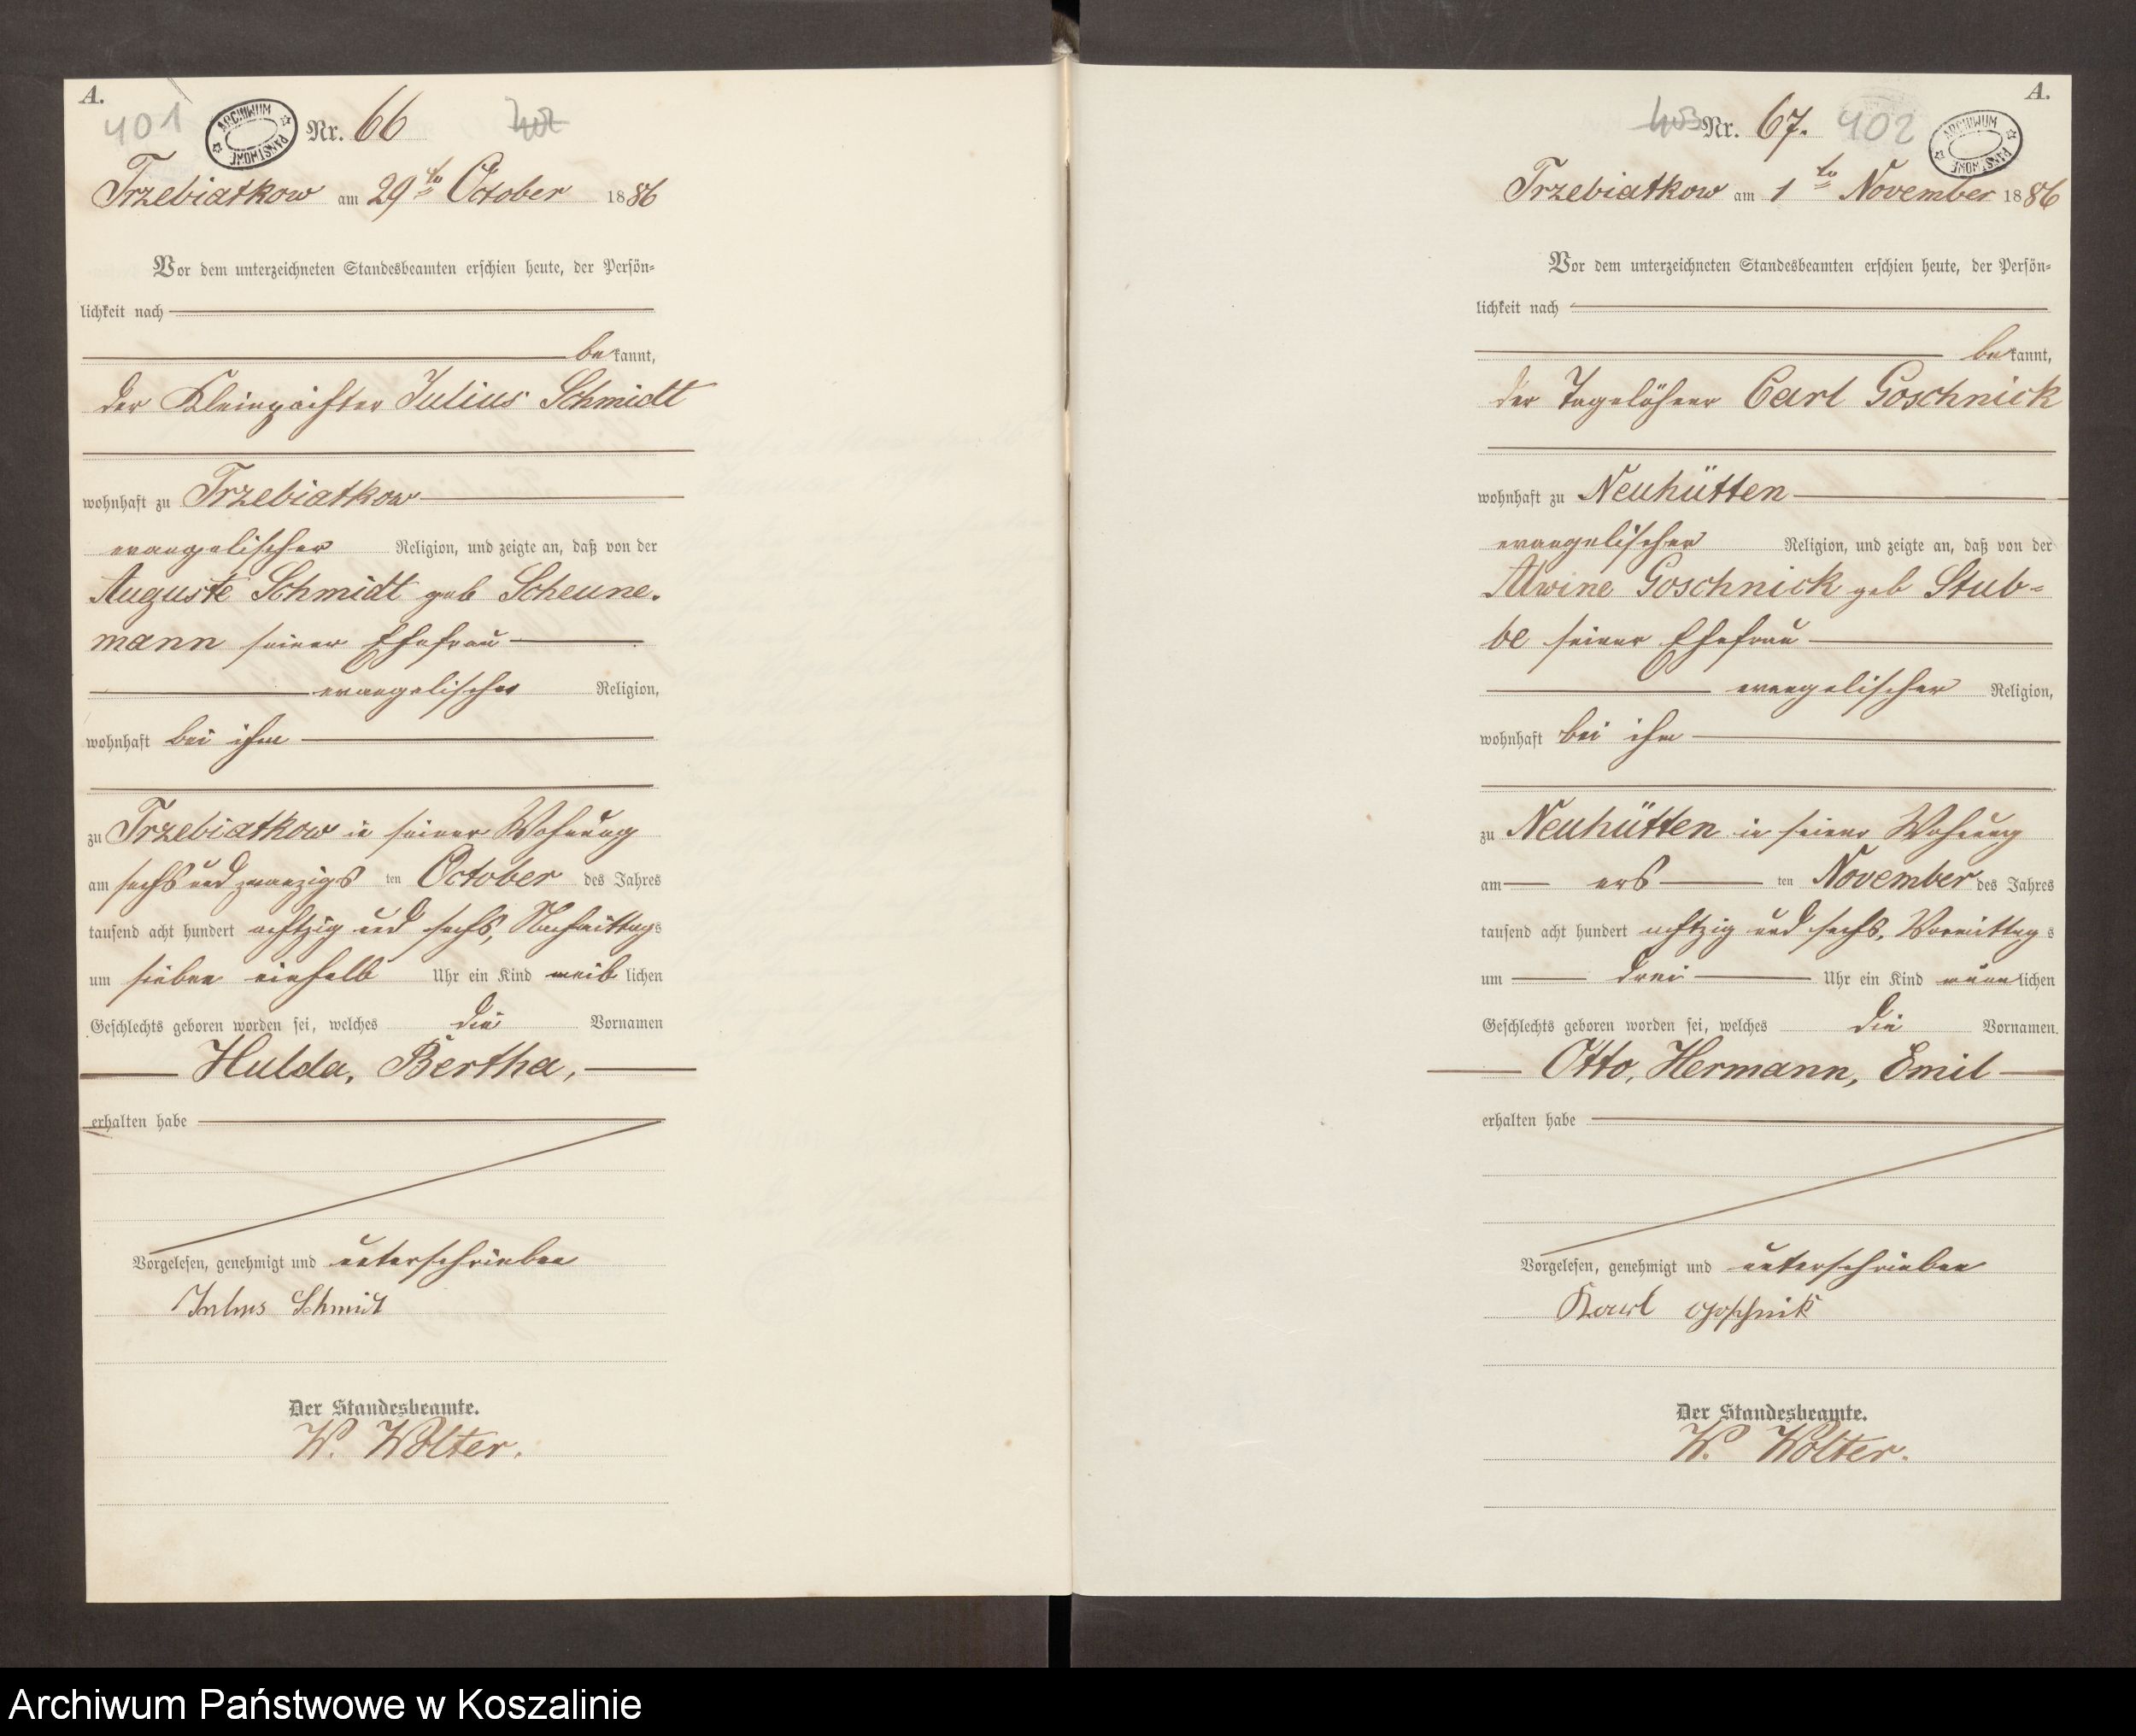 A.
401
ARCHIWUM PAŃSTWOWE
Nr. 66
402
Trzebiatkow am 29ten October 1886
Vor dem unterzeichneten Standesbeamten erschien heute, der Persön=
lichkeit nach
bekannt,
der Kleinpächter Julius Schmidt
wohnhaft zu Trzebiatkow
evangelischer Religion, und zeigte an, daß von der
Auguste Schmidt geb Scheune-
mann seiner Ehefrau
evangelischer Religion,
wohnhaft bei ihm
zu Trzebiatkow in seiner Wohnung
am sechs und zwanzigs ten October des Jahres
tausend acht hundert achtzig und sechs, Nachmittags
um sieben einhalb Uhr ein Kind weiblichen
Geschlechts geboren worden sei, welches die Vornamen
Hulda, Bertha,
erhalten habe
Vorgelesen, genehmigt und unterschrieben
Julius Schmidt
Der Standesbeamte.
W. Wolter.
A.
403
Nr. 67.
402
ARCHIWUM PAŃSTWOWE
Trzebiatkow am 1ten November 1886
Vor dem unterzeichneten Standesbeamten erschien heute, der Persön=
lichkeit nach
bekannt,
der Tagelöhner Carl Goschnick
wohnhaft zu Neuhütten
evangelischer Religion, und zeigte an, daß von der
Alwine Goschnick geb Stub=
be seiner Ehefrau
evangelischer Religion,
wohnhaft bei ihm
zu Neuhütten in seiner Wohnung
am ers ten November des Jahres
tausend acht hundert achtzig und sechs, Vormittags
um drei Uhr ein Kind männlichen
Geschlechts geboren worden sei, welches die Vornamen
Otto, Hermann, Emil
erhalten habe
Vorgelesen, genehmigt und unterschrieben
Karl Goschnik
Der Standesbeamte.
W. Wolter.
Archiwum Państwowe w Koszalinie